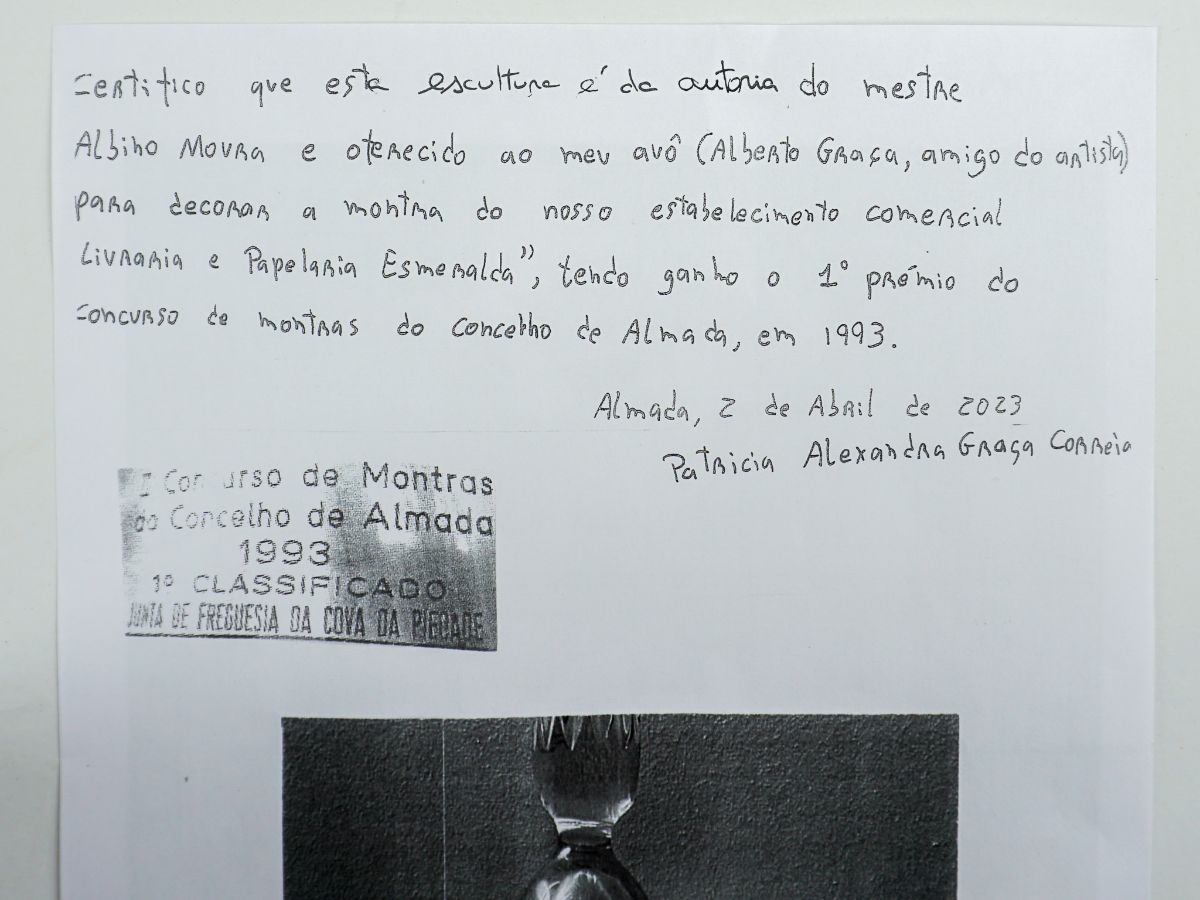 Certifico que esta escultura é da autoria do mestre
Albino Moura e oferecido ao meu avô (Alberto Graça, amigo do artista)
para decorar a montra do nosso estabelecimento comercial
Livraria e Papelaria Esmeralda”, tendo ganho o 1º prémio do
concurso de montras do concelho de Almada, em 1993.
Almada, 2 de Abril de 2023
Patricia Alexandra Graça Correia
I Concurso de Montras
do Concelho de Almada
1993
1º CLASSIFICADO
JUNTA DE FREGUESIA DA COVA DA PIEDADE